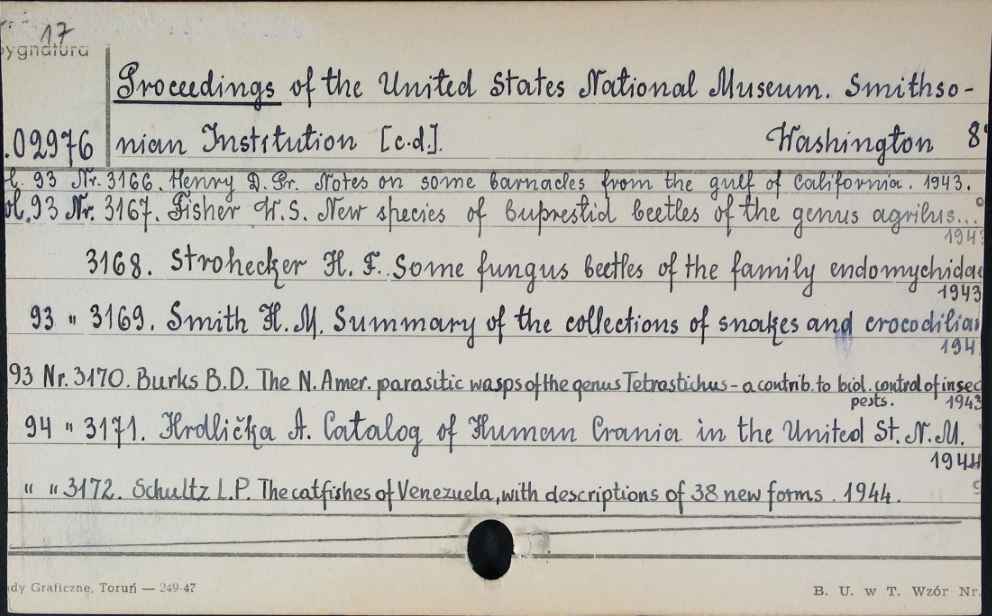 17
Sygnatura
Proceedings of the United States National Museum. Smithso-
.02976 nian Institution [c.d.]. Washington 8°
l. 93 Nr. 3166. Henry D. Pr. Notes on some barnacles from the gulf of California. 1943.
ol. 93 Nr. 3167. Fisher W.S. New species of buprestid beetles of the genus agrilus...
1943
3168. Strohecker H. F. Some fungus beetles of the family endomychidae
1943
93 " 3169. Smith H.M. Summary of the collections of snakes and crocodilian
194
93 Nr. 3170. Burks B.D. The N. Amer. parasitic wasps of the genus Tetrastichus - a contrib. to biol. control of insec
pests. 1943
94 " 3171. Hrdlička A. Catalog of Human Crania in the United St. N. M.
1944
" " 3172. Schultz L.P. The catfishes of Venezuela, with descriptions of 38 new forms. 1944.
dy Graficzne, Toruń — 249-47 B. U. w T. Wzór Nr.